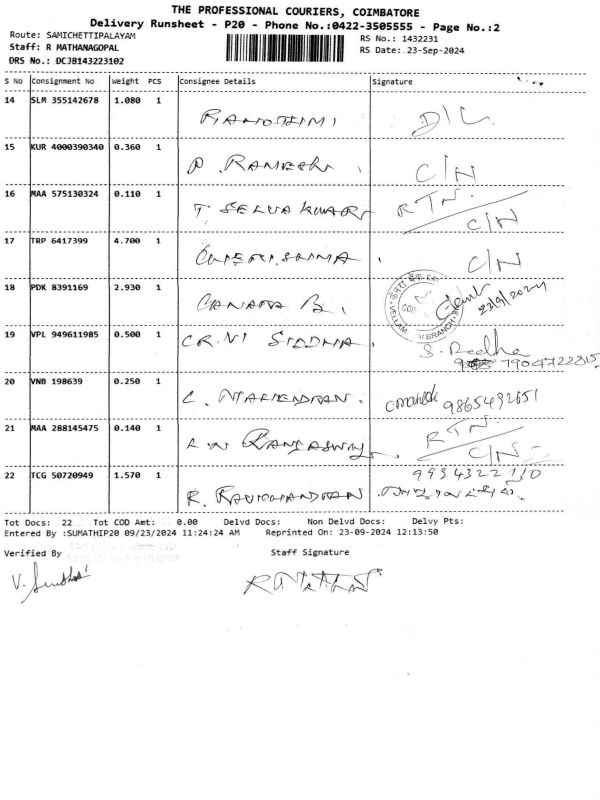 THE PROFESSIONAL COURIERS, COIMBATORE
Delivery Runsheet - P20 - Phone No.:0422-3505555 - Page No.:2
Route: SAMICHETTIPALAYAM
RS No.: 1432231
Staff: R MATHANAGOPAL
RS Date: 23-Sep-2024
DRS No.: DCJB143223102
S No Consignment No Weight PCS Consignee Details Signature
14 SLM 355142678 1.080 1
D/L
15 KUR 4000390340 0.360 1
P. RAMESH C/N
16 MAA 575130324 0.110 1
T. SELVA KUMAR RTN. C/N
17 TRP 6417399 4.700 1
C/N
18 PDK 8391169 2.930 1
CANARA B.
19 VPL 949611985 0.500 1
S. Radha
7904722815
20 VNB 198639 0.250 1
C. MAHENDRAN. 9865492651
21 MAA 288145475 0.140 1
RANGASWAY RTN. C/N
22 TCG 50720949 1.570 1
R. RAVICHANDRAN
Tot Docs: 22 Tot COD Amt: 0.00 Delvd Docs: Non Delvd Docs: Delvy Pts:
Entered By :SUMATHIP20 09/23/2024 11:24:24 AM Reprinted On: 23-09-2024 12:13:50
Verified By Staff Signature